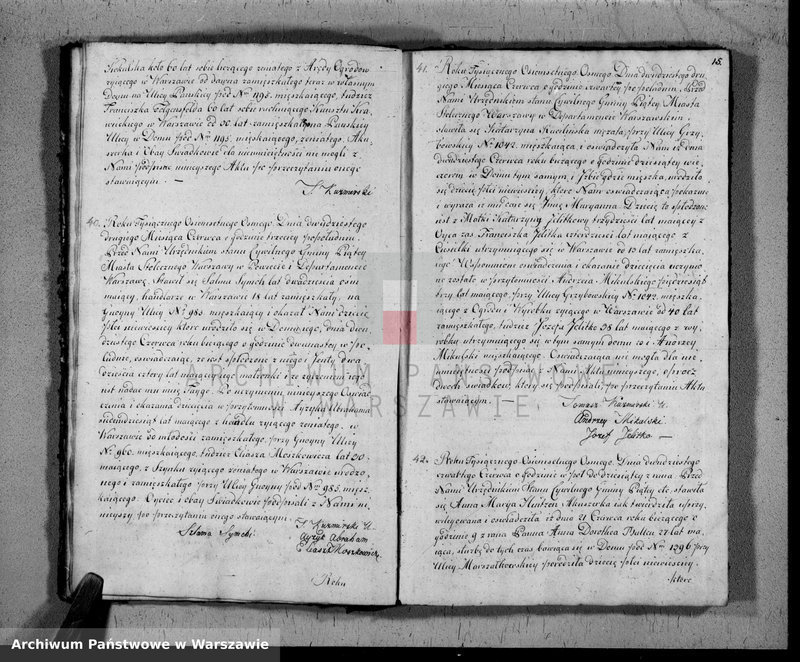 Kokulska koło 60 lat sobie liczącego żeniatego z Arędy Ogrodow
żyiącego w Warszawie od dawna zamięszkałego teraz w własnym
Domu na Ulicy Pawskiey Nº 1195. mięszkaiącego, tudzież
Franciszka 60 lat sobie rachuiącego Kunsztu Kra,
wieckiego w Warszawie od 30 lat zamięszkałego na Pawskiey
Ulicy w Domu pod Nº 1195. mięszkaiącego, żeniatego, Aku,
szerka i Obay Swiadkowie dla nieumieiętności nie mogli z
Nami podpisać ninieyszego Aktu po przeczytaniu onego
stawaiącym. —
T. Kuzmirski
40. Roku Tysiącznego Osiemsetnego Osmego. Dnia dwudziestego
drugiego Miesiąca Czerwca o godzinie trzeciey popołudniu.
Przed Nami Urzędnikiem stanu Cywilnego Gminy Piątey
Miasta Stołecznego Warszawy w Powiecie i Departamencie
Warszaw. Stawił się Salma Symoch lat dwadzieścia osm
maiący, handlarz w Warszawie 18 lat zamięszkały, na
Gnoyney Ulicy Nº 985. mięszkaiący i okazał Nam dziecie
płci niewiesciey które urodziło się w Domu iego, dnia dwu,
dziestego Czerwca roku bieżącego o godzinie dwunastey w Po,
łudnie, oswiadczaiąc, że iest spłodzone z niego i Jenty dwa
dziescia cztery lat maiącey małżonki i że życzeniem iego
iest nadać mu imie Fayge. Po uczynieniu ninieyszego Oswiad,
czenia i okazania dziecięcia w przytomnosci Ayzyka Abrahama
siedmdziesiąt lat maiącego z handlu żyiącego żeniatego, w
Warszawie od młodosci zamięszkałego, przy Gnoyney Ulicy
Nº 960. mięszkaiącego, tudzież Eliasza Moszkowicza lat 30.
maiącego, z Szynku żyiącego żeniatego w Warszawie urodzo,
nego i zamięszkałego przy Ulicy Gnoyny pod Nº 985. mięsz,
kaiącego. Oyciec i obay Swiadkowie podpisali z Nami ni,
nieyszy po przeczytaniu onego stawaiącym.
T. Kuzmirski
Ayzyk Abraham
Eliasz Moszkowicz
Roku
15.
41. Roku Tysiącznego Osiemsetnego Osmego. Dnia dwudziestego dru,
giego Miesiąca Czerwca o godzinie czwartey po południu, Przed
Nami Urzędnikiem stanu Cywilnego Gminy Piątey Miasta
Stołecznego Warszawy w Departamencie Warszawskim,
stawiła się Katarzyna przy Ulicy Grzy,
bowskiey Nº 1042. mięszkaiąca, i oswiadczyła Nam iż dnia
dwudziestego Czerwca roku bieżącego o godzinie dziesiątey wie,
czorem w Domu tym samym i Izbie gdzie mięszka, urodziło
się dziecie płci niewiesciey, które Nam oswiadczaiąca pokazuie
i wyraża iż ma dać się Imie Maryanna. Dziecie to spłodzone
iest z Matki Katarzyny Jelitkowey trzydziesci lat maiącey z
Oyca zas Franciszka Jelitka czterdziesci lat maiącego z
Ciesielki utrzymuiącego się w Warszawie od 13 lat zamięszka,
łego. Wspomnione oswiadczenie i okazanie dziecięcia uczynio
ne zostało w przytomnosci Andrzeia Mikulskiego pięcdziesiąt
trzy lat maiącego, przy Ulicy Grzybowskiey Nº 1042. mięszka,
iącego z Ogrodu i Wyrobku żyiącego w Warszawie od 40 lat
zamięszkałego, tudzież Jozefa Jelitko 38 lat maiącego z wy,
robku utrzymuiącego się w tym samym domu co i Andrzey
Mikulski mięszkaiącego. Oswiadczaiąca nie mogła dla nie
umieiętnosci podpisać z Nami Aktu ninieyszego, oprocz
dwoch swiadkow, którzy się podpisali, po przeczytaniu Aktu
stawaiącym. —
Tomasz Kuzmirski
Andrzey Mikulski
Jozef Jelitko —
42. Roku Tysiącznego Osiemsetnego Osmego. Dnia dwudziestego
czwartego Czerwca o godzinie w poł do dziesiątey z rana. Przed
Nami Urzędnikiem Stanu Cywilnego Gminy Piątey etc. stawiła
się Anna Marya Hintzen Akuszerka iak twierdziła uprzy,
wileiowana i oswiadczyła iż dnia 21 Czerwca roku bieżącego o
godzinie 9 z rana Panna Anna Dorothea 27 lat ma,
iąca, służbą do tych czas bawiąca się w Domu pod Nº 1396 przy
Ulicy Marszałkowskiey porodziła dziecie płci niewiesciey.
ktore
ARCHIWUM PAŃSTWOWE
W WARSZAWIE
Archiwum Państwowe w Warszawie